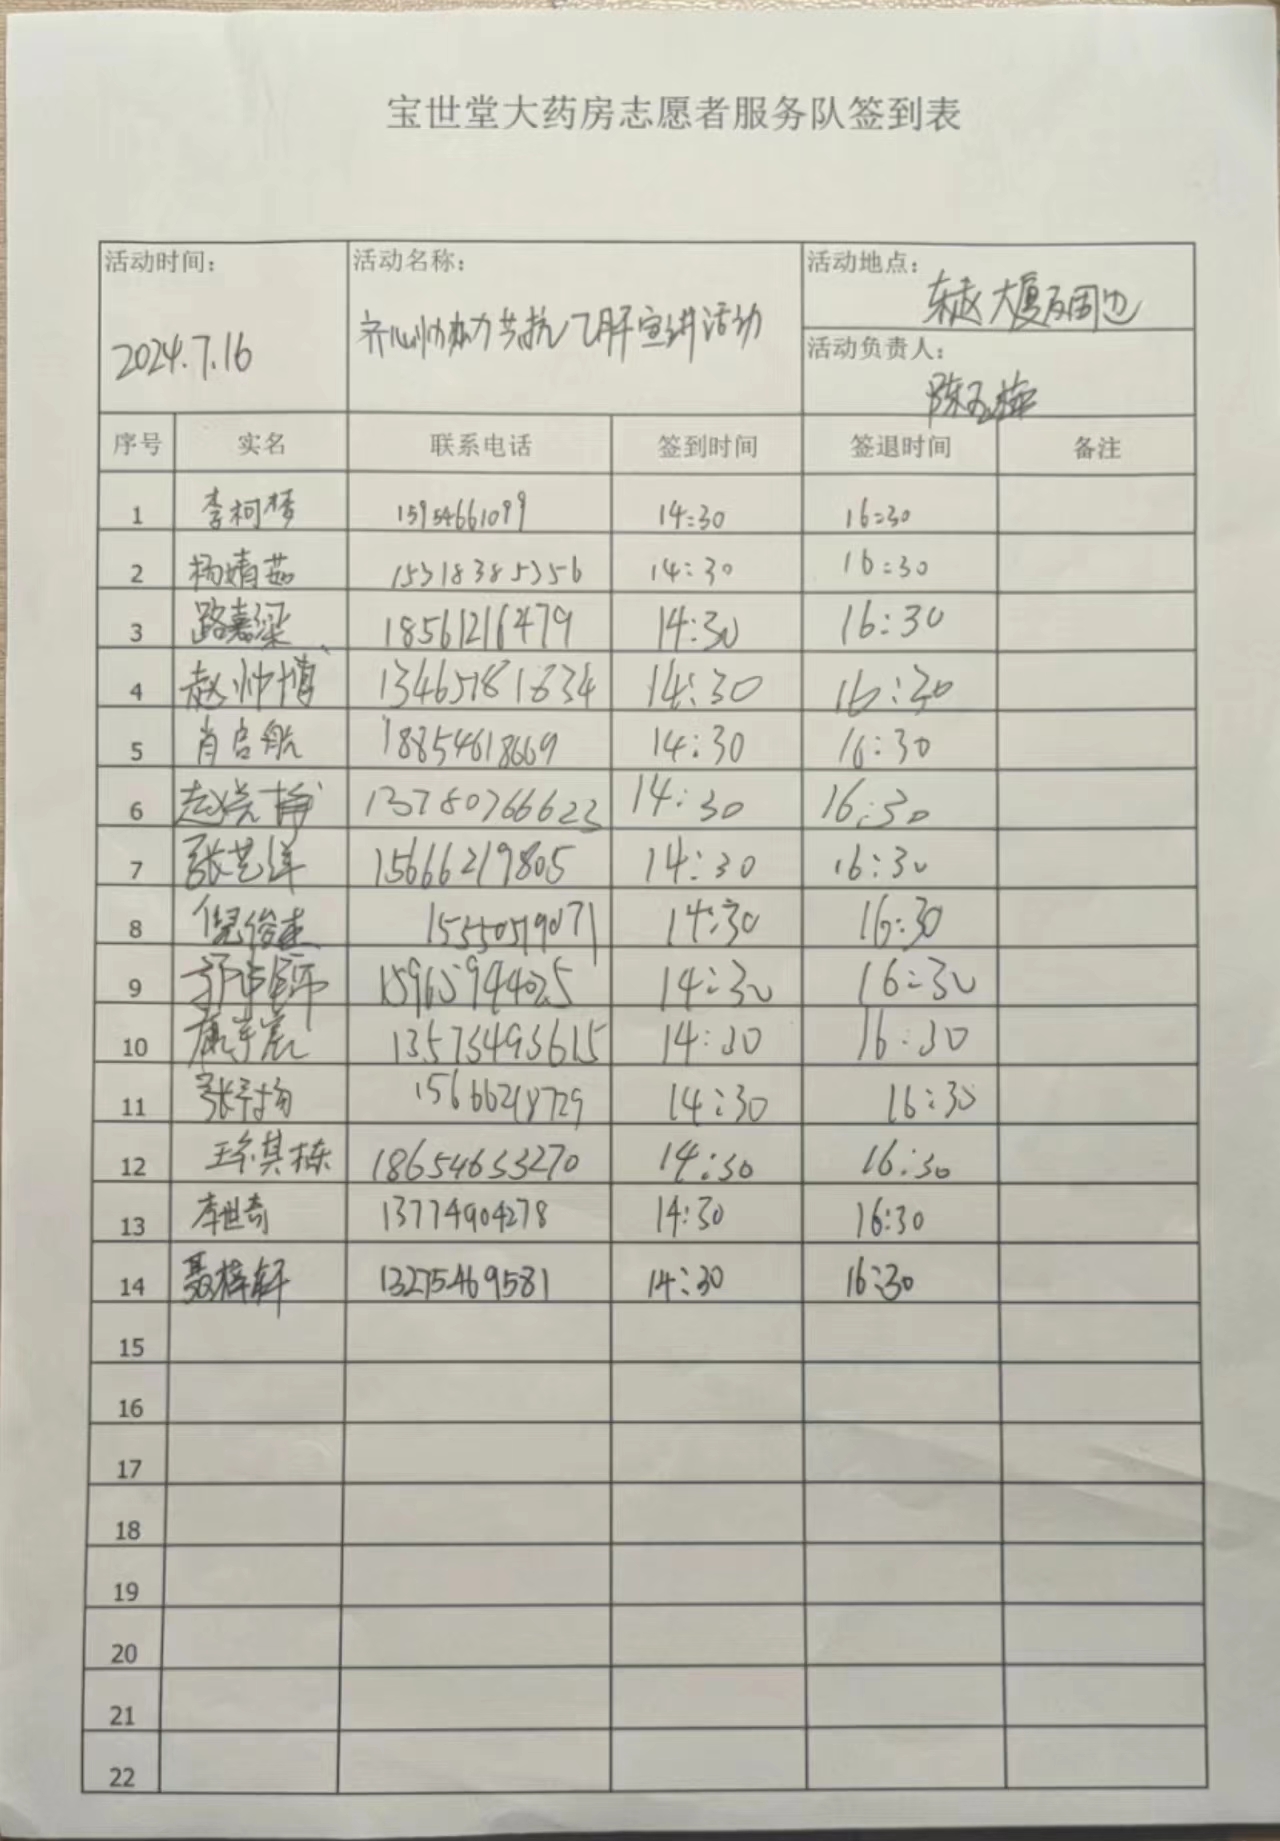 宝世堂大药房志愿者服务队签到表
活动时间：
2024.7.16
活动名称：
齐心协力共抗乙肝宣讲活动
活动地点：
东赵大厦及周边
活动负责人：
陈玉梅
序号 实名 联系电话 签到时间 签退时间 备注
1 李柯梦 15954661099 14:30 16:30
2 杨婧茹 15318385356 14:30 16:30
3 路嘉梁 18561216479 14:30 16:30
4 赵帅博 13465781634 14:30 16:30
5 肖启航 18854618669 14:30 16:30
6 13780766623 14:30 16:30
7 张艺洋 15666219805 14:30 16:30
8 倪俊杰 15550519071 14:30 16:30
9 15965944025 14:30 16:30
10 康宇宸 13573493615 14:30 16:30
11 15666218729 14:30 16:30
12 18654653270 14:30 16:30
13 李世奇 13774904278 14:30 16:30
14 聂梓轩 13275469581 14:30 16:30
15
16
17
18
19
20
21
22